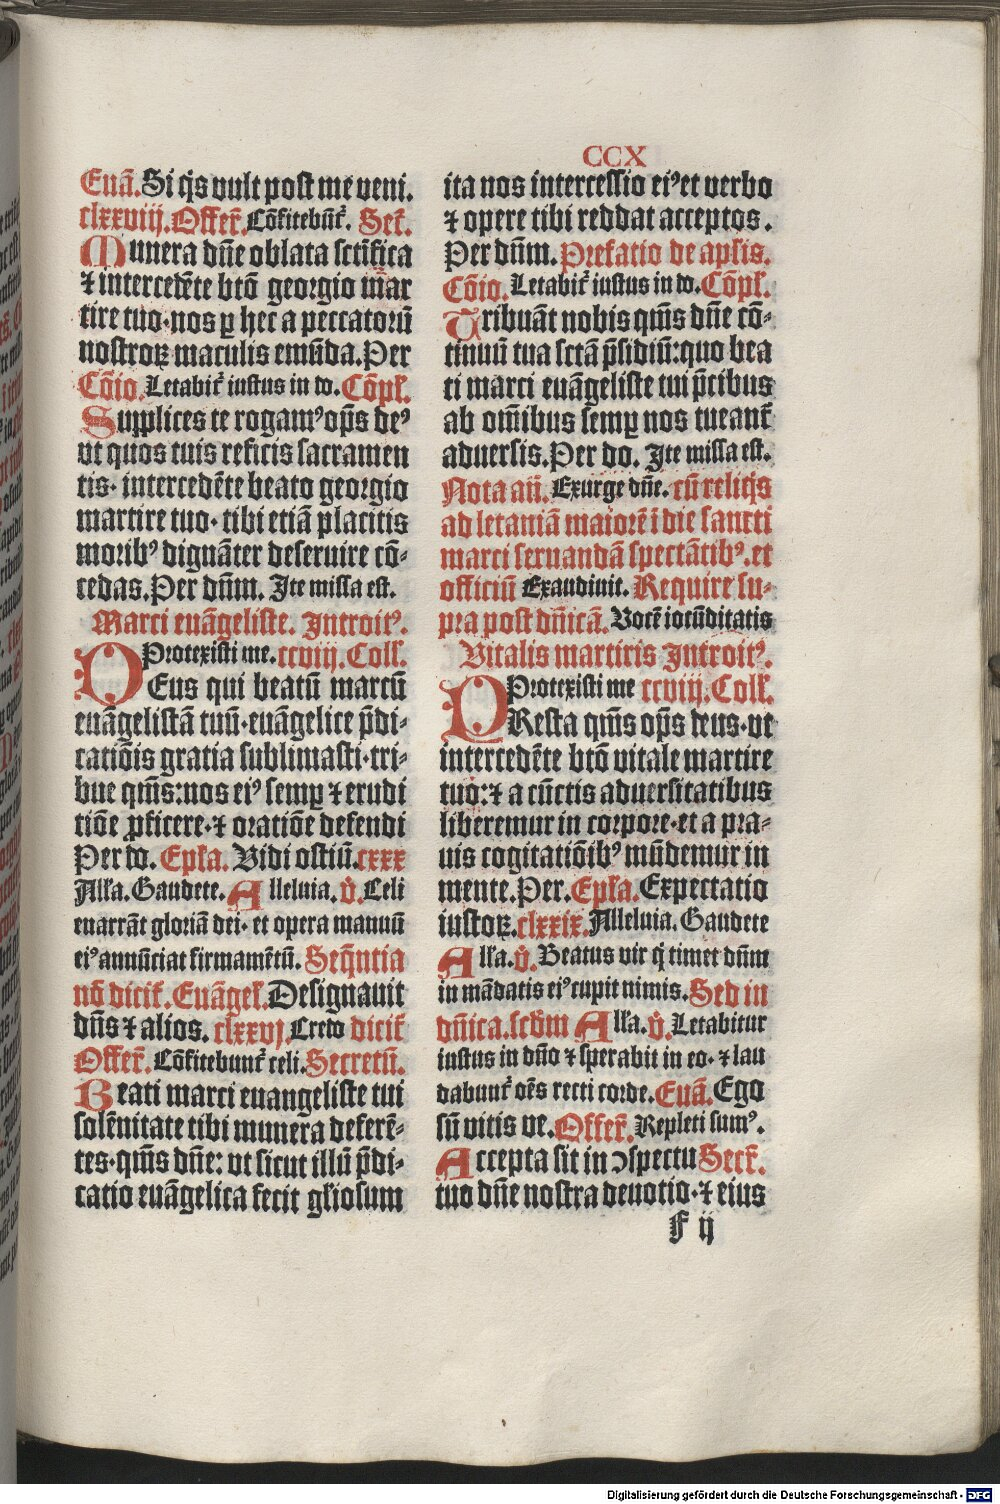 CCX
Euā. Si q̇s vult post me veni.
clxxviij. Offer̄. Cōfitebūt᷑. Sec̄.
Munera dn̄e oblata sctīfica
⁊ intercedēte btō georgio mar
tire tuo·nos ꝑ hec a peccatorū
nostroꝝ maculis emūda. Per
Cōio. Letabit᷑ iustus in do. Cōpl̄.
Supplices te rogamꝰ op̄s deꝰ
vt quos tuis reficis sacramen
tis· intercedēte beato georgio
martire tuo· tibi etiā placitis
moribꝰ dignāter deseruire cō-
cedas. Per dn̄m. Ite missa est.
Marci euāgeliste. Introitꝰ.
Protexisti me. ccviij. Coll̄.
DEus qui beatū marcū
euāgelistā tuū·euāgelice p̄di-
catiōis gratia sublimasti·tri-
bue qm̄s:nos eiꝰ semꝑ ⁊ erudi
tiōe ꝓficere·⁊ oratiōe defendi
Per do. Epl̄a. Vidi ostiū. cxxx
All̄a. Gaudete. Alleluia. v̄. Celi
enarrāt gloriā dei· et opera manuū
eiꝰ annūciat firmamētū. Seq̄ntia
nō dicit᷑. Euāgel̄. Designauit
dn̄s ⁊ alios. clxxvj. Credo dicit᷑
Offer̄. Cōfitebunt᷑ celi. Secretū.
Beati marci euangeliste tui
solēnitate tibi munera deferē-
tes·qm̄s dn̄e: vt sicut illū p̄di-
catio euāgelica fecit gl̄iosum
ita nos intercessio eiꝰ et verbo
⁊ opere tibi reddat acceptos.
Per dn̄m. Prefatio de apl̄is.
Cōio. Letabit᷑ iustus in do. Cōpl̄.
Tribuāt nobis qm̄s dn̄e cō-
tinuū tua sctā p̄sidiū:quo bea
ti marci euāgeliste tui p̄cibus
ab om̄ibus semꝑ nos tueant᷑
aduersis. Per do. Ite missa est.
Nota añ. Exurge dn̄e. cū reliq̇s
ad letaniā maiorē ī die sancti
marci seruandā spectātibꝰ. et
officiū Exaudiuit. Require su-
pra post dn̄icā. Vocē iocūditatis
Vitalis martiris Introitꝰ.
Protexisti me ccviij. Coll̄.
PResta qm̄s op̄s deus·vt
intercedēte btō vitale martire
tuo:⁊ a cūctis aduersitatibus
liberemur in corpore·et a pra-
uis cogitatiōibꝰ mūdemur in
mente. Per. Epl̄a. Expectatio
iustoꝝ. clxxix. Alleluia. Gaudete
All̄a. v̄. Beatus vir q̇ timet dn̄m
in mādatis eiꝰ cupit nimis. Sed in
dn̄ica. scd̄m All̄a. v̄. Letabitur
iustus in dn̄o ⁊ sperabit in eo· ⁊ lau
dabunt᷑ oēs recti corde. Euā. Ego
sū vitis ve. Offer̄. Repleti sumꝰ.
Accepta sit in ↄspectu Secr̄.
tuo dn̄e nostra deuotio·⁊ eius
F ij
Digitalisierung gefördert durch die Deutsche Forschungsgemeinschaft - DFG